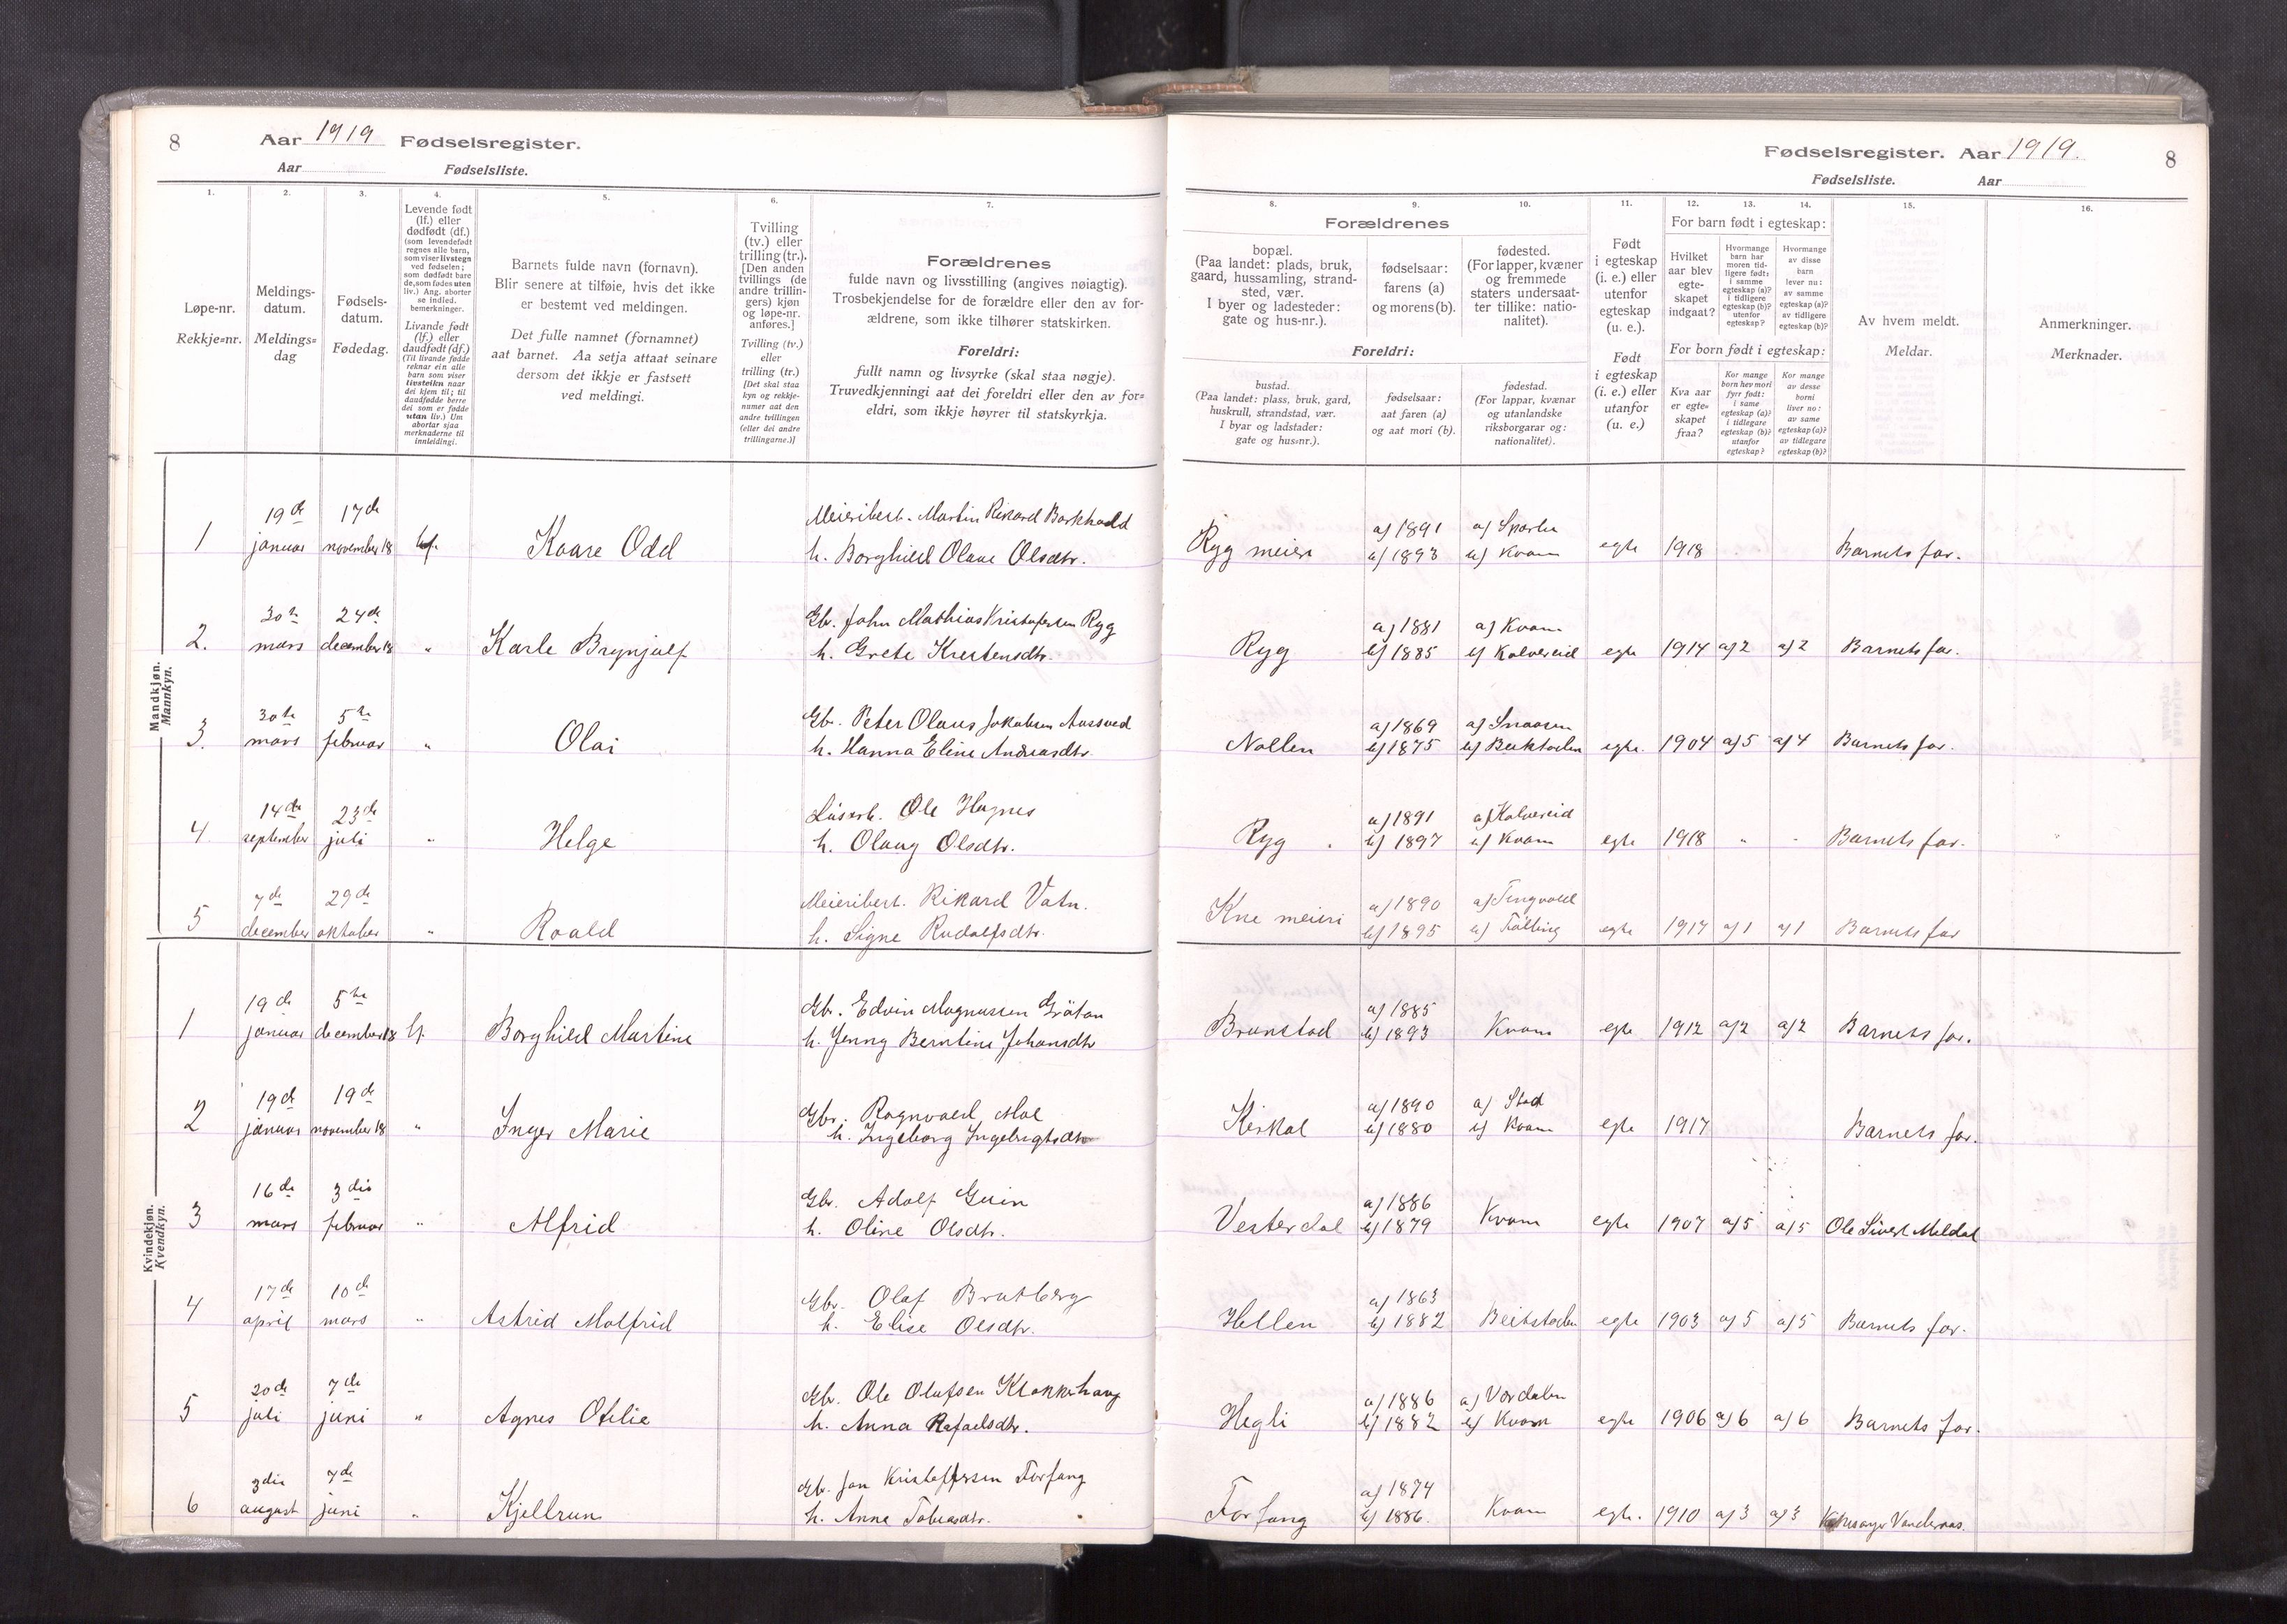 8
Aar 1919 Fødselsregister.
Aar Fødselsliste.
1.
2.
3.
4.
5.
6.
7.
Løpe-nr.
Rekkje=nr.
Meldings-
datum.
Meldings=
dag
Fødsels-
datum.
Fødedag.
Levende født
(lf.) eller
dødfødt (df.)
(som levendefødt
regnes alle barn,
som viser livstegn
ved fødselen;
som dødfødt bare
de, som fødes uten
liv.) Ang. aborter
se indled.
bemerkninger.
Livande født
(lf.) eller
daudfødt (df.)
(Til livande fødde
reknar ein alle
barn som viser
livsteikn naar
dei kjem til; til
daudfødde berre
dei som er fødde
utan liv.) Um
abortar sjaa
merknaderne til
innleidingi.
Barnets fulde navn (fornavn).
Blir senere at tilføie, hvis det ikke
er bestemt ved meldingen.
Det fulle namnet (fornamnet)
aat barnet. Aa setja attaat seinare
dersom det ikkje er fastsett
ved meldingi.
Tvilling
(tv.) eller
trilling (tr.).
[Den anden
tvillings (de
andre trillin-
gers) kjøn
og løpe-nr.
anføres.]
Tvilling (tv.)
eller
trilling (tr.)
[Det skal staa
kyn og rekkje-
numer aat den
andre tvillingen
(eller dei andre
trillingarne.)]
Forældrenes
fulde navn og livsstilling (angives nøiagtig).
Trosbekjendelse for de forældre eller den av for-
ældrene, som ikke tilhører statskirken.
Foreldri:
fullt namn og livsyrke (skal staa nøgje).
Truvedkjenningi aat dei foreldri eller den av for=
eldri, som ikkje høyrer til statskyrkja.
Mandkjøn.
Mannkyn.
1
19de januar
17de november 18
lf.
Kaare Odd
Meieribest. Martin Rikard Barkhald
h. Borghild Olave Olsdtr.
2.
30te mars
24de december 18
"
Karle Brynjulf
Gbr. John Mathias Kristofersen Ryg
h. Grete Krestensdtr.
3.
30te mars
5te februar
"
Olai
Gbr. Peter Olaus Jakobsen Aassved
h. Hanna Eline Andreasdtr.
4.
14de september
23de juli
"
Helge
Ole Hagnes
h. Olaug Olsdtr.
5
7de december
29de oktober
"
Roald
Meieribest. Rikard Vatn.
h. Signe Rudolfsdtr.
Kvindekjøn.
Kvendkyn.
1
19de januar
5te december 18
lf.
Borghild Martine
Gbr. Edvin Magnussen Gråtan
h. Jenny Berntine Johansdtr
2
19de januar
19de november 18
"
Inger Marie
Gbr. Ragnvald Moe
h. Ingeborg Ingebrigtsdtr
3
16de mars
3die februar
"
Alfrid
Gbr. Adolf Guin
h. Oline Olsdtr.
4
17de april
10de mars
"
Astrid Malfrid
Gbr. Olaf Bratberg
h. Elise Olsdtr.
5
20de juli
7de juni
"
Agnes Otelie
Gbr. Ole Olufsen Klokkerhaug
h. Anna Rafaelsdtr.
6
3die august
7de juni
"
Kjellrun
Gbr. Jon Kristoffersen Forfang
h. Anne Tobiasdtr.
Fødselsregister. Aar 1919.
8
Fødselsliste. Aar
8.
9.
10.
11.
12.
13.
14.
15.
16.
Forældrenes
bopæl.
(Paa landet: plads, bruk,
gaard, hussamling, strand-
sted, vær.
I byer og ladesteder:
gate og hus-nr.).
fødselsaar:
farens (a)
og morens (b).
fødested.
(For lapper, kvæner
og fremmede
staters undersaat-
ter tillike: natio-
nalitet).
Foreldri:
bustad.
(Paa landet: plass, bruk, gard,
huskrull, strandstad, vær.
I byar og ladstader:
gate og hus=nr.).
fødselsaar:
aat faren (a)
og aat mori (b).
fødestad.
(For lappar, kvænar
og utanlandske
riksborgarar og:
nationalitet).
Født
i egteskap
(i. e.) eller
utenfor
egteskap
(u. e.).
Født
i egteskap
(i. e.) eller
utanfor
(u. e.)
For barn født i egteskap:
Hvilket
aar blev
egte-
skapet
indgaat?
Hvormange
barn har
moren tid-
ligere født:
i samme
egteskap (a)?
i tidligere
egteskap (b)?
utenfor
egteskap?
Hvormange
av disse
barn
lever nu:
av samme
egteskap (a)?
av tidligere
egteskap (b)?
For born født i egteskap:
Kva aar
er egte-
skapet
fraa?
Kor mange
born hev mori
fyrr født:
i same
egteskap (a)?
i tidlegare
egteskap (b)?
utanfor
egteskap?
Kor mange
av desse
borni
liver no:
av same
egteskap (a)?
av tidlegare
egteskap (b)?
Av hvem meldt.
Meldar.
Anmerkninger.
Merknader.
Ryg meieri
a) 1891
b) 1893
a) Sparbu
b) Kvam
egte
1918
Barnets far.
Ryg
a) 1881
b) 1885
a) Kvam
b) Kolvereid
egte
1914
a) 2
a) 2
Barnets far.
Nollen
a) 1869
b) 1875
a) Snaasen
b) Beitstaden
egte.
1904
a) 5
a) 4
Barnets far.
Ryg
a) 1891
b) 1897
a) Kolvereid
b) Kvam
egte
1918
"
"
Barnets far.
Kne meieri
a) 1890
b) 1895
a) Tingvold
b) Følling
egte
1917
a) 1
a) 1
Barnets far
Brunstad
a) 1885
b) 1893
Kvam
egte
1912
a) 2
a) 2
Barnets far.
Kirkol
a) 1890
b) 1880
a) Stod
b) Kvam
egte
1917
Barnets far.
Vesterdal
a) 1886
b) 1879
Kvam
egte
1907
a) 5
a) 5
Ole Sivert Meldal
Hellen
a) 1863
b) 1882
Beitstaden
egte
1903
a) 5
a) 5
Barnets far.
Hegli
a) 1886
b) 1882
a) Værdalen
b) Kvam
egte
1906
a) 6
a) 6
Barnets far.
Forfang
a) 1874
b) 1886.
Kvam
egte.
1910
a) 3
a) 3